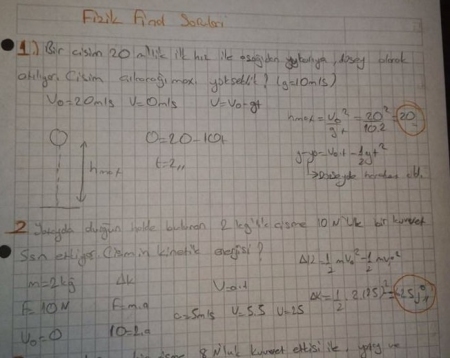 Fizik Final Soruları
1.) Bir cisim 20 m/s'lik ilk hız ile aşağıdan yukarıya, düşey olarak
atılıyor. Cisim çıkacağı max. yükseklik? (g=10m/s)
V₀=20m/s V=0m/s V=V₀-gt
hmax = V₀²/g = 20²/10.2 = 20
0=20-10t
t=2
hmax
y-y₀=V₀.t-1/2gt²
2. durgun halde bulunan 2 kg'lık cisme 10 N'luk bir kuvvet
5sn etkiliyor. Cismin kinetik enerjisi?
m=2kg Δk V=a.t
F=10N F=m.a a=5m/s V=5.5 V=25
V₀=0 10=2.a
Δk=1/2.2.(25)²
8 N'luk kuvvet etkisi ile, yatay ve